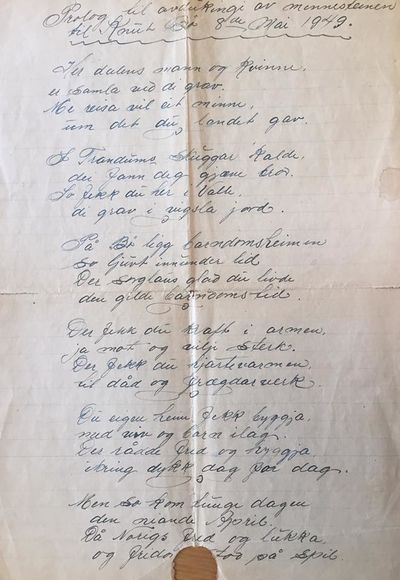 Prolog til avdukinga av minnesteinen
til Knut Bø 8de Mai 1949.
Her dalens mann og kvinne,
er samla ved di grav.
Me reisa vil eit minne,
um det du landet gav.
I Trandums skuggar kalde,
dei fann deg
So fekk du her i Valle,
di grav i vigsla jord.
På Bø ligg barndomsheimen
so ljuvt innunder lid
Der sorglaus glad du livde
den gilde barndomstid.
Der fekk du kraft i armen,
ja mot og vilje sterk.
Der fekk du hjartevarmen,
til dåd og frægdarverk.
Du eigen heim fekk byggja,
med viv og barn ilag.
Der rådde fred og hyggja,
ikring dykk dag for dag.
Men so kom tunge dagen
den niande April.
Då Norigs fred og lukka
og fridom stod på spil.